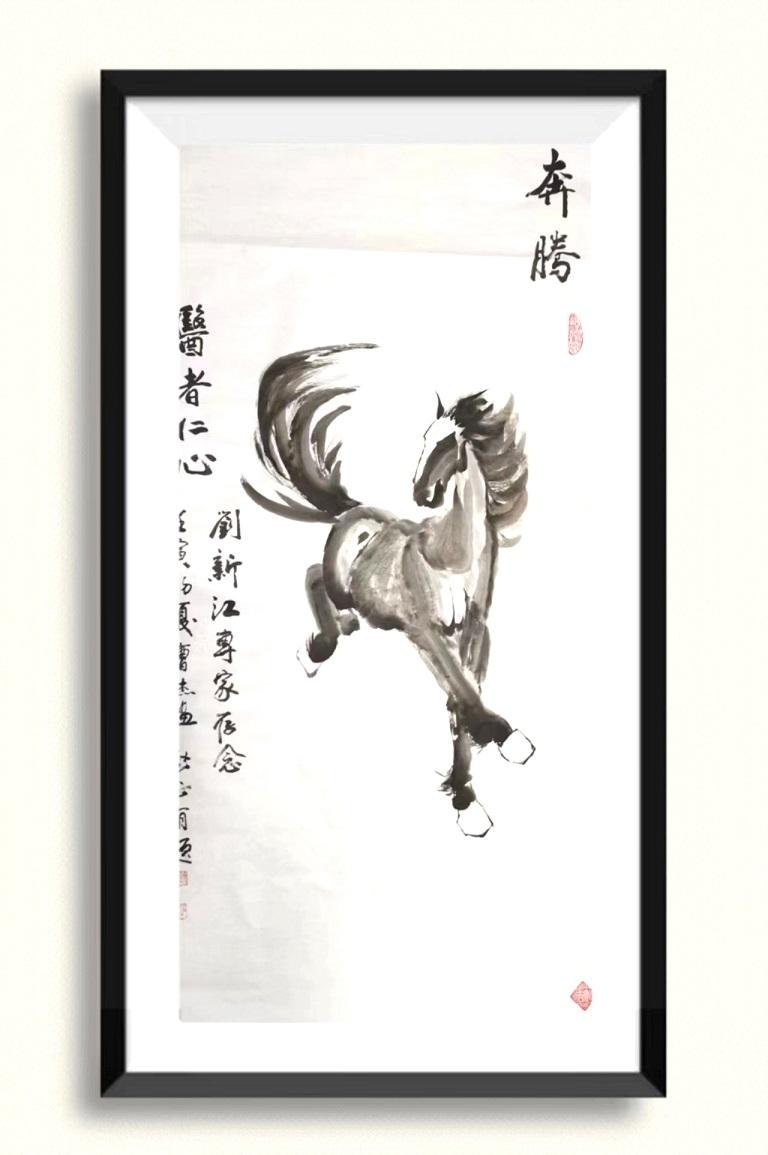 奔騰
醫者仁心
劉新江專家存念
壬寅 夏曹杰畫